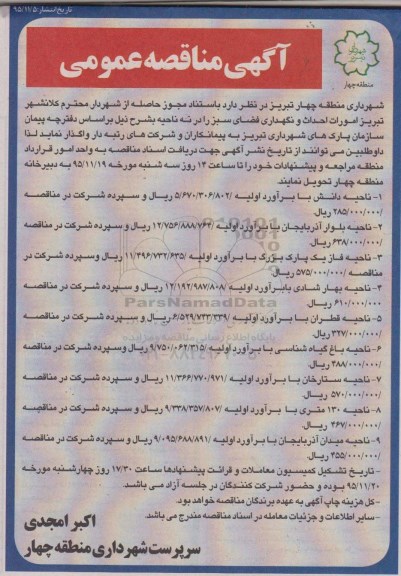 تاریخ انتشار: ۹۵/۱۱/۵
آگهی مناقصه عمومی
منطقه چهار
شهرداری منطقه چهار تبریز در نظر دارد باستناد مجوز حاصله از شهردار محترم کلانشهر
تبریز امورات احداث و نگهداری فضای سبز را در نه ناحیه بشرح ذیل براساس دفترچه پیمان
سازمان پارک های شهرداری تبریز به پیمانکاران و شرکت های رتبه دار واگذار نماید لذا
داوطلبین می توانند از تاریخ نشر آگهی جهت دریافت اسناد مناقصه به واحد امور قرارداد
منطقه مراجعه و پیشنهادات خود را تا ساعت ۱۴ روز سه شنبه مورخه ۹۵/۱۱/۱۹ به دبیرخانه
منطقه چهار تحویل نمایند.
۱- ناحیه دانش با برآورد اولیه ۵/۶۷۰/۳۰۶/۸۰۲/ ریال و سپرده شرکت در مناقصه
۲۸۵/۰۰۰/۰۰۰/ ریال.
۲- ناحیه بلوار آذربایجان با برآورد اولیه ۱۲/۷۵۶/۸۸۸/۷۶۲/ ریال و سپرده شرکت در مناقصه
۶۳۸/۰۰۰/۰۰۰/ ریال.
۳- ناحیه فاز یک پارک بزرگ با برآورد اولیه ۱۱/۴۹۶/۷۳۲/۶۳۵/ ریال وسپرده شرکت در
مناقصه ۵۷۵/۰۰۰/۰۰۰/ ریال
۴- ناحیه بهار شادی بابرآورد اولیه ۱۲/۱۹۲/۹۸۷/۸۰۸/ ریال و سپرده شرکت در مناقصه
۶۱۰/۰۰۰/۰۰۰/ ریال.
۵- ناحیه قطران با برآورد اولیه ۶/۵۲۹/۷۳۳/۳۳۹/ ریال و سپرده شرکت در مناقصه
۳۲۷/۰۰۰/۰۰۰/ ریال.
۶- ناحیه باغ گیاه شناسی با برآورد اولیه ۹/۷۵۰/۰۶۲/۳۱۵/ ریال وسپرده شرکت در مناقصه
۴۸۸/۰۰۰/۰۰۰/ ریال.
۷- ناحیه ستارخان با برآورد اولیه ۱۱/۳۶۶/۷۷۰/۹۷۱/ ریال و سپرده شرکت در مناقصه
۵۷۰/۰۰۰/۰۰۰/ ریال.
۸- ناحیه ۱۳۰ متری با برآورد اولیه ۹/۳۳۸/۳۵۷/۸۰۷/ ریال و سپرده شرکت در مناقصه
۴۶۷/۰۰۰/۰۰۰/ ریال.
۹- ناحیه میدان آذربایجان با برآورد اولیه ۹/۰۹۵/۶۸۸/۸۹۱/ ریال و سپرده شرکت در مناقصه
۴۵۵/۰۰۰/۰۰۰/ ریال.
- تاریخ تشکیل کمیسیون معاملات و قرائت پیشنهادها ساعت ۱۷/۳۰ روز چهارشنبه مورخه
۹۵/۱۱/۲۰ بوده و حضور شرکت کنندگان در جلسه آزاد می باشد.
- کل هزینه چاپ آگهی به عهده برندگان مناقصه خواهد بود.
- سایر اطلاعات و جزئیات معامله در اسناد مناقصه مندرج می باشد.
اکبر امجدی
سرپرست شهرداری منطقه چهار
ParsNamadData